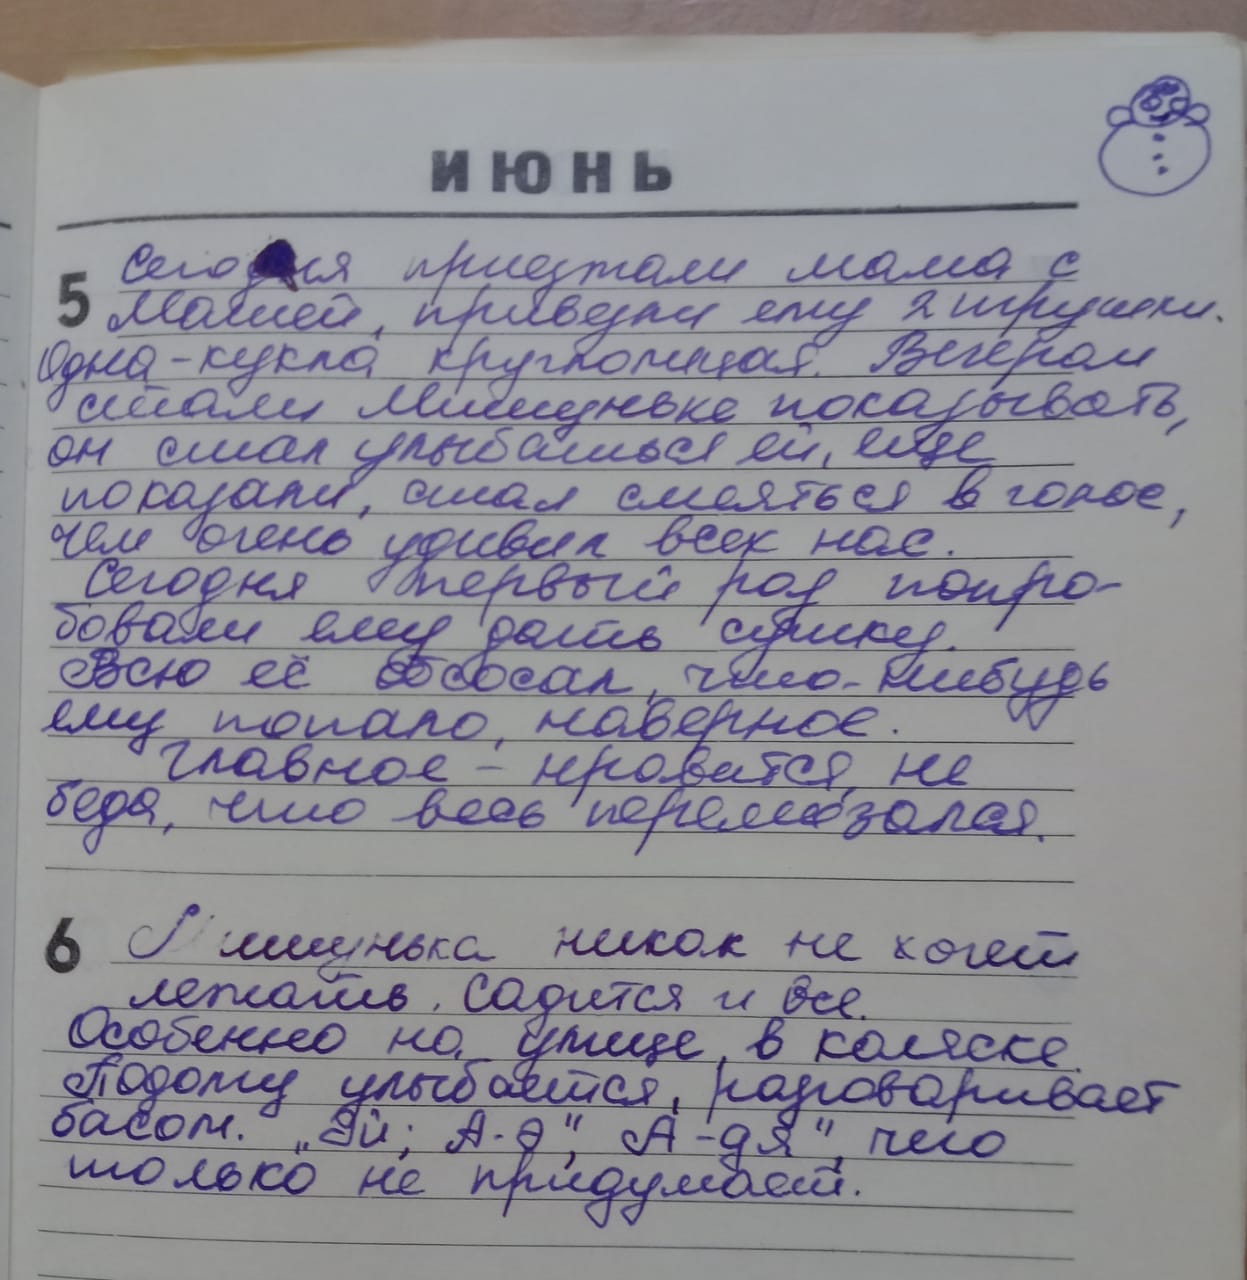 ИЮНЬ
5 Сегодня приезжали мама с
Машей, привезли ему 2 игрушки.
Одна - кукла круглолицая. Вечером
стали Мишуньке показывать,
он стал улыбаться ей, еще
показали, стал смеяться в голос,
чем очень удивил всех нас.
Сегодня первый раз попро-
бовали ему дать сушку.
Всю её обсосал, что-нибудь
ему попало, наверное.
Главное - нравится, не
беда, что весь перемазался.
6 Мишунька никак не хочет
лежать. Садится и все.
Особенно на улице, в коляске.
Подолгу улыбается, разговаривает
басом. "Эй; А-а", А-дя", чего
только не придумает.